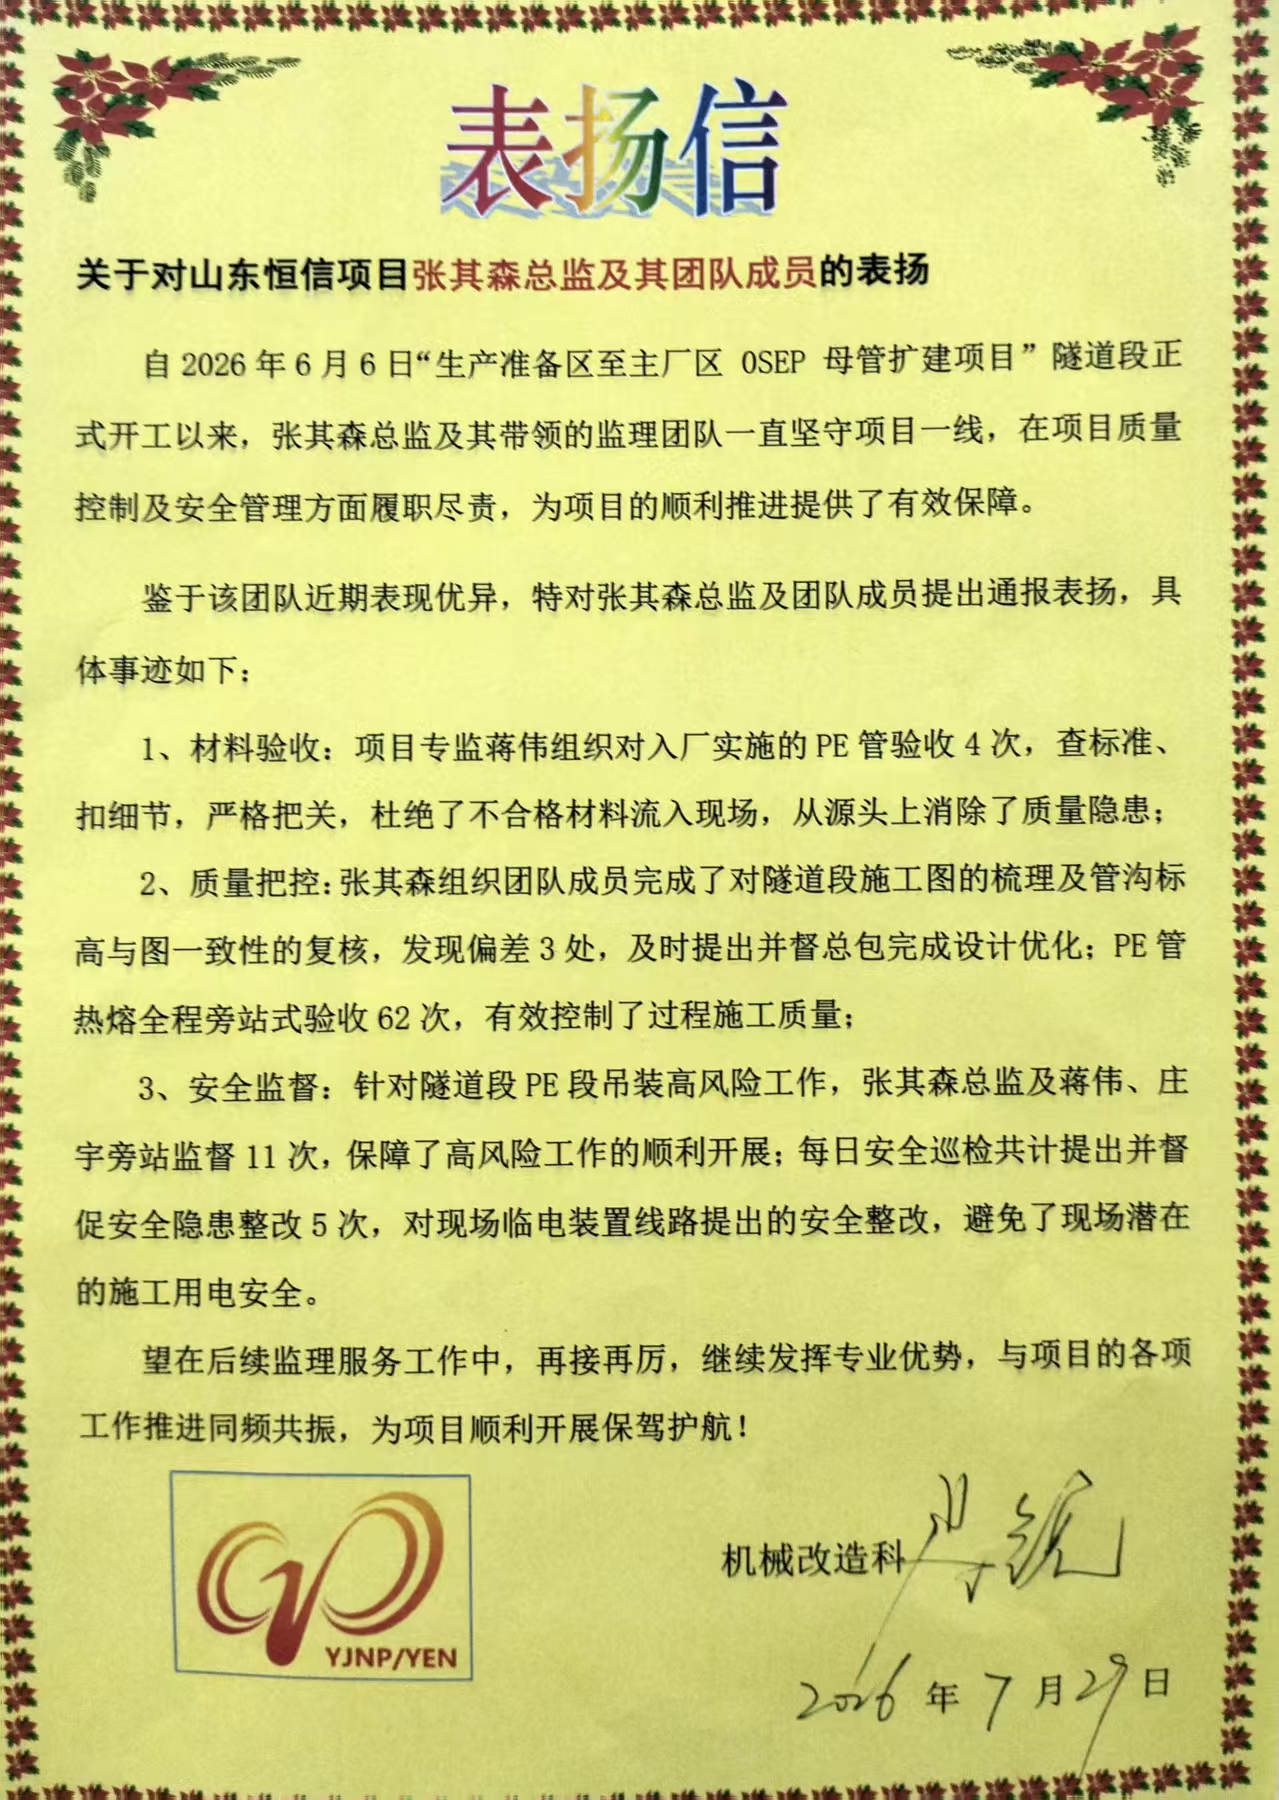 表扬信
关于对山东恒信项目张其森总监及其团队成员的表扬
自 2026 年 6 月 6 日“生产准备区至主厂区 0SEP 母管扩建项目” 隧道段正
式开工以来，张其森总监及其带领的监理团队一直坚守项目一线，在项目质量
控制及安全管理方面履职尽责，为项目的顺利推进提供了有效保障。
鉴于该团队近期表现优异，特对张其森总监及团队成员提出通报表扬，具
体事迹如下：
1、材料验收：项目专监蒋伟组织对入厂实施的 PE 管验收 4 次，查标准、
扣细节，严格把关，杜绝了不合格材料流入现场，从源头上消除了质量隐患；
2、质量把控：张其森组织团队成员完成了对隧道段施工图的梳理及管沟标
高与图一致性的复核，发现偏差 3 处，及时提出并督总包完成设计优化；PE 管
热熔全程旁站式验收 62 次，有效控制了过程施工质量；
3、安全监督：针对隧道段 PE 段吊装高风险工作，张其森总监及蒋伟、庄
宇旁站监督 11 次，保障了高风险工作的顺利开展；每日安全巡检共计提出并督
促安全隐患整改 5 次，对现场临电装置线路提出的安全整改，避免了现场潜在
的施工用电安全。
望在后续监理服务工作中，再接再厉，继续发挥专业优势，与项目的各项
工作推进同频共振，为项目顺利开展保驾护航！
YJNP/YEN
机械改造科
2026 年 7 月 29 日